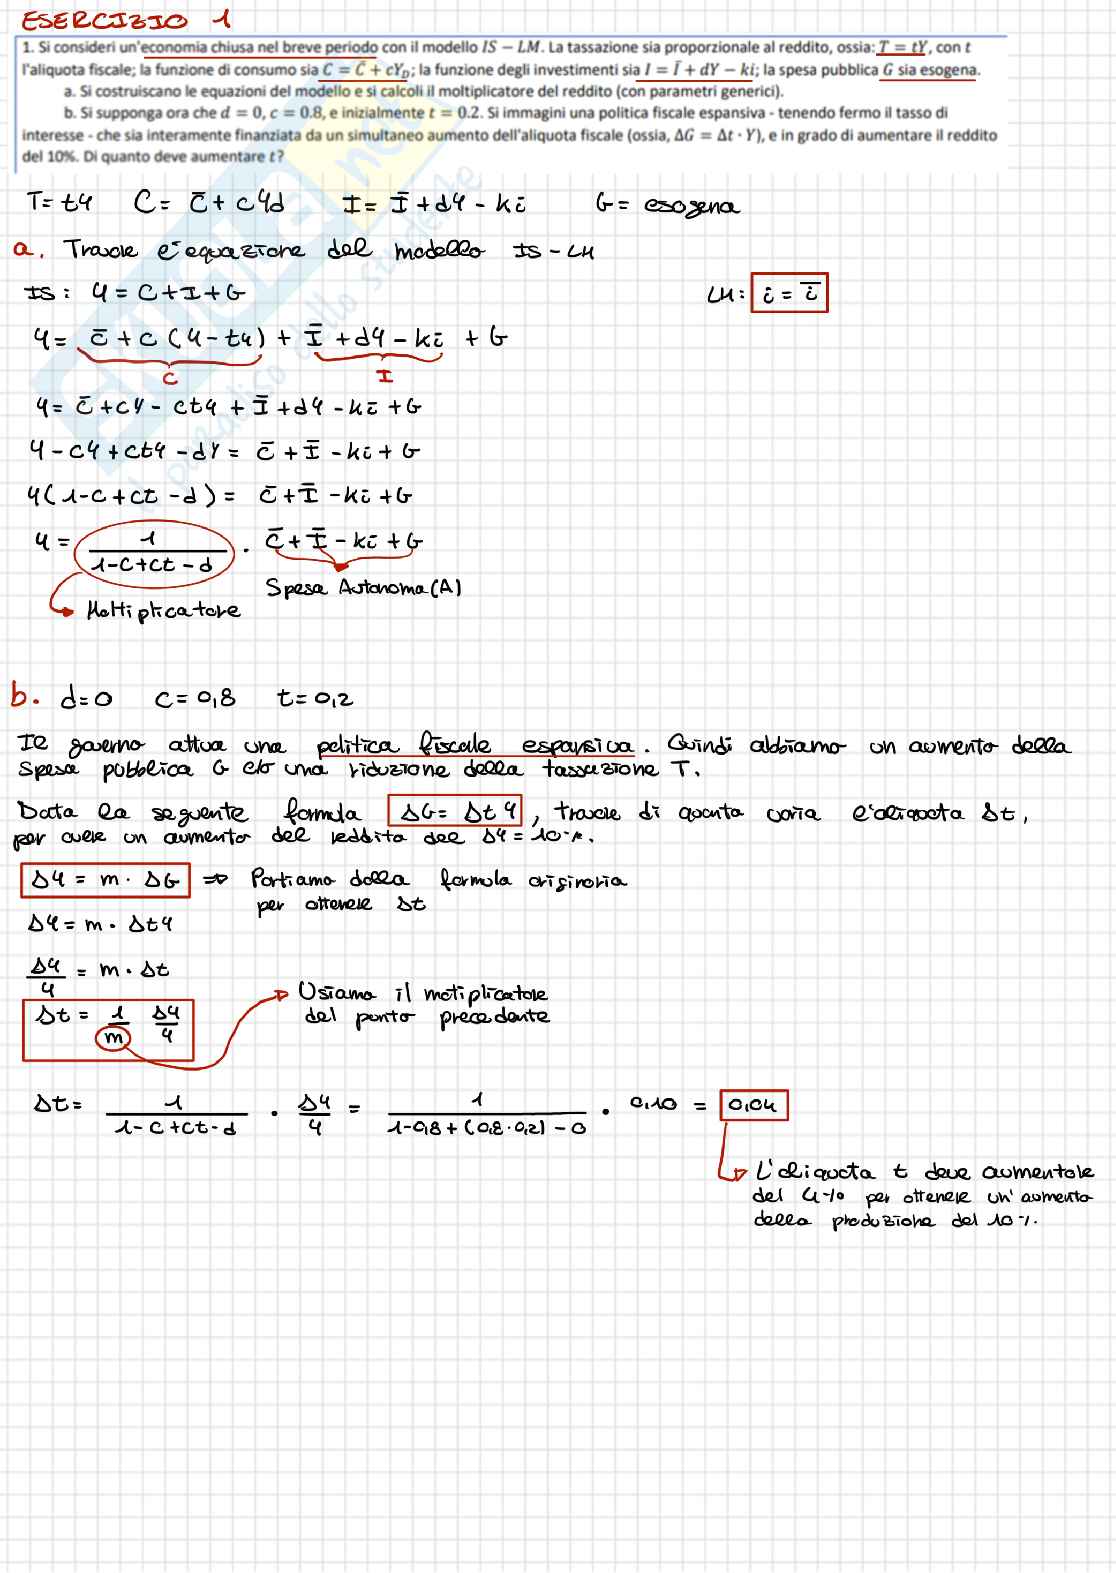 ESERCIZIO 1
1. Si consideri un'economia chiusa nel breve periodo con il modello IS − LM. La tassazione sia proporzionale al reddito, ossia: T = tY, con t
l'aliquota fiscale; la funzione di consumo sia C = C̄ + cY_D; la funzione degli investimenti sia I = Ī + dY − ki; la spesa pubblica G sia esogena.
a. Si costruiscano le equazioni del modello e si calcoli il moltiplicatore del reddito (con parametri generici).
b. Si supponga ora che d = 0, c = 0.8, e inizialmente t = 0.2. Si immagini una politica fiscale espansiva - tenendo fermo il tasso di
interesse - che sia interamente finanziata da un simultaneo aumento dell'aliquota fiscale (ossia, ΔG = Δt · Y), e in grado di aumentare il reddito
del 10%. Di quanto deve aumentare t?
T= tY C= C̄ + cYd I= Ī + dY - ki G= esogena
a. Trovare l'equazione del modello IS-LM
IS: Y = C+I+G LM: i = ī
Y= C̄ + c (Y-tY) + Ī + dY - ki + G
C I
Y= C̄ + cY - ctY + Ī + dY - ki + G
Y - cY + ctY - dY = C̄ + Ī - ki + G
Y(1-c+ct-d) = C̄ + Ī - ki + G
Y = 1 / 1-c+ct-d · C̄ + Ī - ki + G
Spesa Autonoma (A)
Moltiplicatore
b. d=0 c=0,8 t=0,2
Il governo attua una politica fiscale espansiva. Quindi abbiamo un aumento della
spesa pubblica G e/o una riduzione della tassazione T.
Data la seguente formula ΔG= Δt Y, trovare di quanto varia l'aliquota Δt,
per avere un aumento del reddito del ΔY = 10%.
ΔY = m · ΔG ⇒ Partiamo dalla formula originaria
per ottenere Δt
ΔY = m · ΔtY
ΔY/Y = m · Δt
Usiamo il motiplicatore
del punto precedente
Δt = 1/m ΔY/Y
Δt= 1 / 1-c+ct-d · ΔY/Y = 1 / 1-0,8+(0,8·0,2)-0 · 0,10 = 0,04
L'aliquota t deve aumentare
del 4% per ottenere un'aumento
della produzione del 10%.